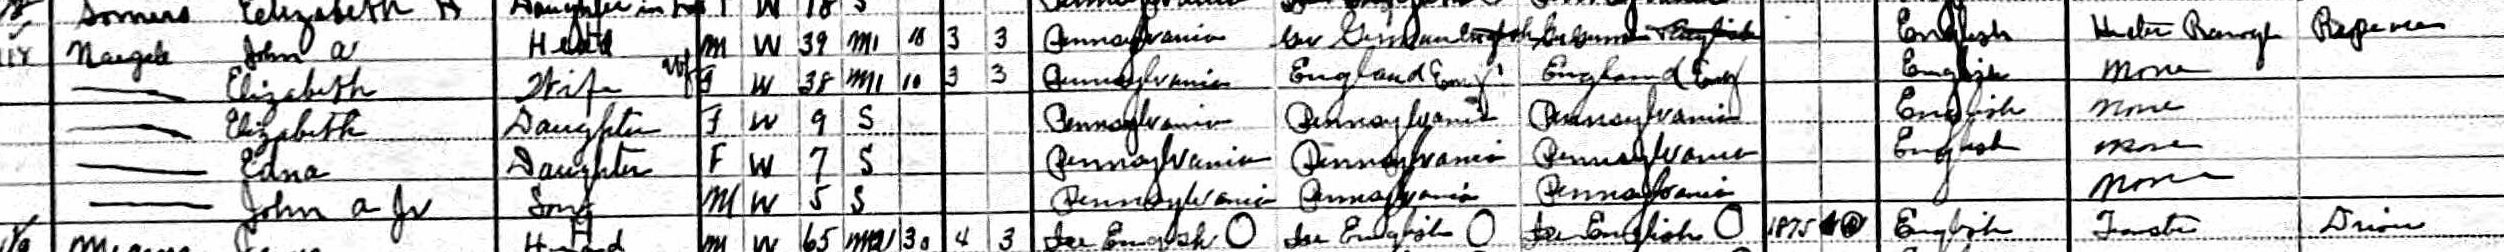 Somers Elizabeth Daughter in W 18 S Pennsylvania
John A Head M W 39 M1 18 3 3 Pennsylvania Ger German English
Elizabeth Wife F W 38 M1 10 3 3 Pennsylvania England Eng England Eng English None
Elizabeth Daughter F W 9 S Pennsylvania Pennsylvania Pennsylvania English None
Edna Daughter F W 7 S Pennsylvania Pennsylvania Pennsylvania English None
John A Jr Son M W 5 S Pennsylvania Pennsylvania Pennsylvania None
Head M W 65 30 4 3 Ire English O Ire English O Ire English O 1875 English